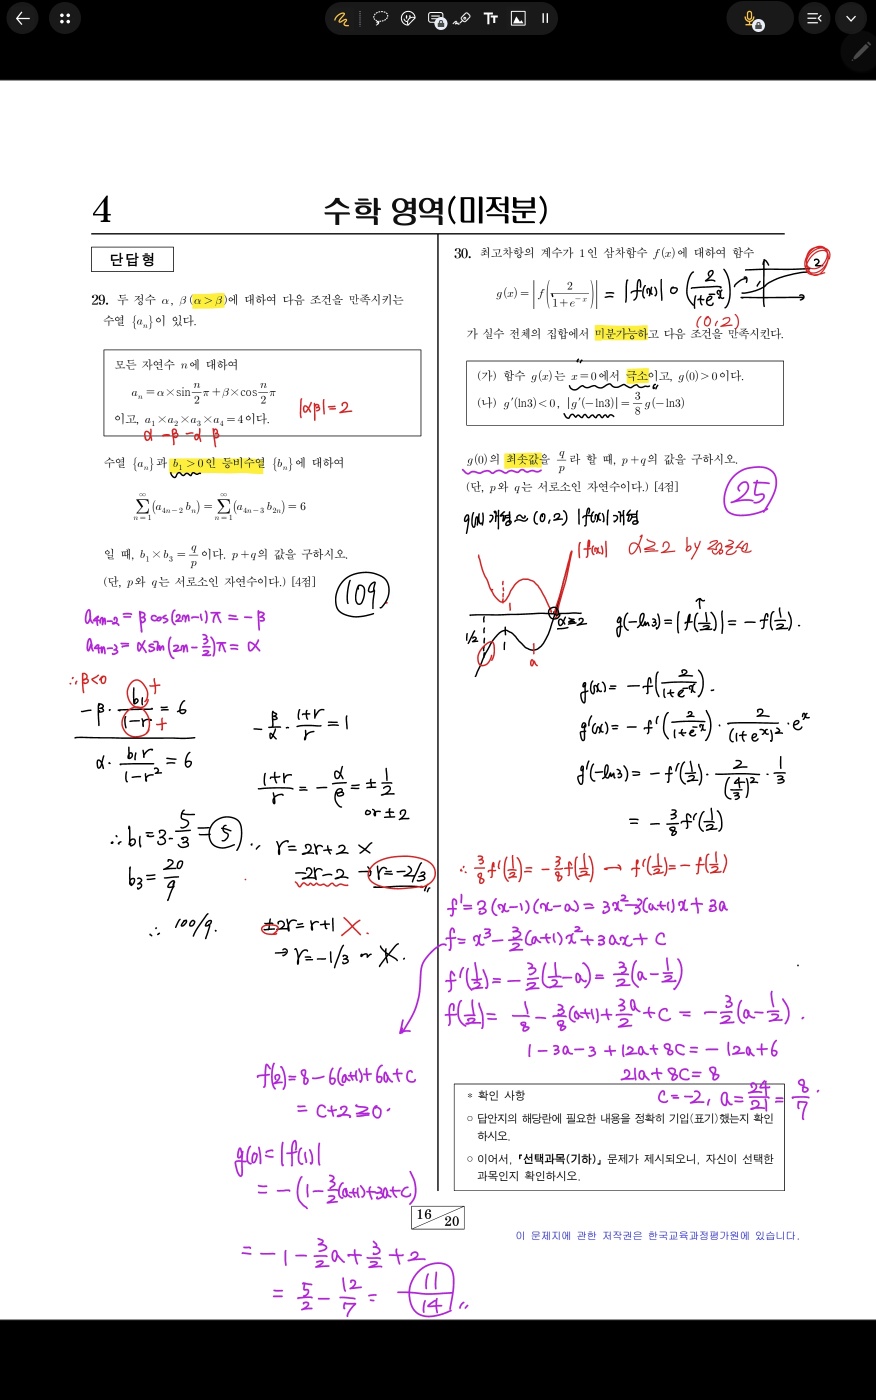 4
수학 영역(미적분)
단답형
29. 두 정수 α, β (α > β)에 대하여 다음 조건을 만족시키는
수열 {aₙ}이 있다.
모든 자연수 n에 대하여
aₙ = α×sin n/2 π + β×cos n/2 π
이고, a₁×a₂×a₃×a₄ = 4이다.
|αβ| = 2
α -β -α β
수열 {aₙ}과 b₁ > 0인 등비수열 {bₙ}에 대하여
∑(n=1, ∞)(a₄ₙ₋₂ bₙ) = ∑(n=1, ∞)(a₄ₙ₋₃ b₂ₙ) = 6
일 때, b₁×b₃ = q/p 이다. p+q의 값을 구하시오.
(단, p와 q는 서로소인 자연수이다.) [4점]
109
a₄ₙ₋₂ = β cos(2n-1)π = -β
a₄ₙ₋₃ = α sin(2n - 3/2)π = α
∴ β<0
-β · b₁/(1-r) = 6
+
+
α · b₁r/(1-r²) = 6
-β/α · (1+r)/r = 1
(1+r)/r = -α/β = ±1/2
or ±2
∴ r = 2r+2 ×
-2r-2 → r = -2/3
±2r = r+1 ×
→ r = -1/3 or ×.
∴ b₁ = 3 · 5/3 = 5
b₃ = 20/9
∴ 100/9.
30. 최고차항의 계수가 1인 삼차함수 f(x)에 대하여 함수
g(x) = |f(2/(1+e⁻ˣ))| = |f(x)| ∘ (2/(1+e⁻ˣ)) →
2
1
(0, 2)
가 실수 전체의 집합에서 미분가능하고 다음 조건을 만족시킨다.
(가) 함수 g(x)는 x=0에서 극소이고, g(0) > 0이다.
(나) g′(ln3) < 0, |g′(-ln3)| = 3/8 g(-ln3)
g(0)의 최솟값을 q/p 라 할 때, p+q의 값을 구하시오.
(단, p와 q는 서로소인 자연수이다.) [4점]
25
g(x) 개형 ≈ (0, 2) |f(x)| 개형
|f(x)|
α≥2 by
1
α≥2
1/2
a
g(-ln3) = |f(1/2)| = -f(1/2).
g(x) = -f(2/(1+e⁻ˣ)).
g′(x) = -f′(2/(1+e⁻ˣ)) · 2/(1+eˣ)² · eˣ
g′(-ln3) = -f′(1/2) · 2/(4/3)² · 1/3
= -3/8 f′(1/2)
∴ 3/8 f′(1/2) = -3/8 f(1/2) → f′(1/2) = -f(1/2)
f′ = 3(x-1)(x-a) = 3x²-3(a+1)x+3a
f = x³ - 3/2(a+1)x² + 3ax + c
f′(1/2) = -3/2(1/2-a) = 3/2(a-1/2)
f(1/2) = 1/8 - 3/8(a+1) + 3a/2 + c = -3/2(a-1/2).
1-3a-3+12a+8c = -12a+6
21a+8c = 8
c = -2, a = 24/21 = 8/7.
f(2) = 8-6(a+1)+6a+c
= c+2 ≥ 0.
g(0) = |f(1)|
= -(1-3/2(a+1)+3a+c)
= -1 - 3/2a + 3/2 + 2
= 5/2 - 12/7 = 11/14
* 확인 사항
○ 답안지의 해당란에 필요한 내용을 정확히 기입(표기)했는지 확인
하시오.
○ 이어서, 「선택과목(기하)」 문제가 제시되오니, 자신이 선택한
과목인지 확인하시오.
16
20
이 문제지에 관한 저작권은 한국교육과정평가원에 있습니다.